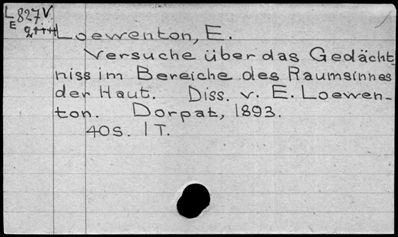 L 827 V.
E 2++++
Loewenton, E.
Versuche über das Gedächt
niss im Bereiche des Raumsinnes
der Haut. Diss. v. E. Loewen-
ton. Dorpat, 1893.
40S. 1T.